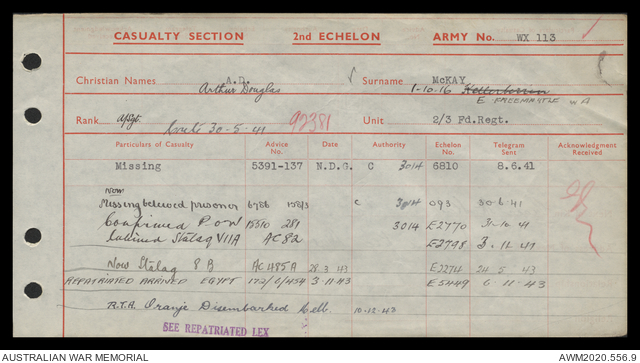 CASUALTY SECTION 2nd ECHELON ARMY No. WX 113
Christian Names A.D. Surname McKAY
Arthur Douglas 1-10-16
E FREEMANTLE W A
Rank A/Sgt. Unit 2/3 Fd.Regt.
Crete 30-5-41 92381
Particulars of Casualty Advice No. Date Authority Echelon No. Telegram Sent Acknowledgment Received
Missing 5391-137 N.D.G. C 3014 6810 8.6.41
Now
Missing believed prisoner 6786 C 3014 093 30.6.41
Confirmed P.O.W 15510 281 3014 E2770 31.10.41
Interned Stalag VIIA AC 82 E2798 3.11.41
Now Stalag 8 B AC 1485A 28.3.43 E7274 24.5.43
REPATRIATED ARRIVED EGYPT 172/6/454 3.11.43 E5449 6.11.43
R.T.A. Oranje Disembarked Melb. 10-12-43
SEE REPATRIATED LEX
AUSTRALIAN WAR MEMORIAL AWM2020.556.9